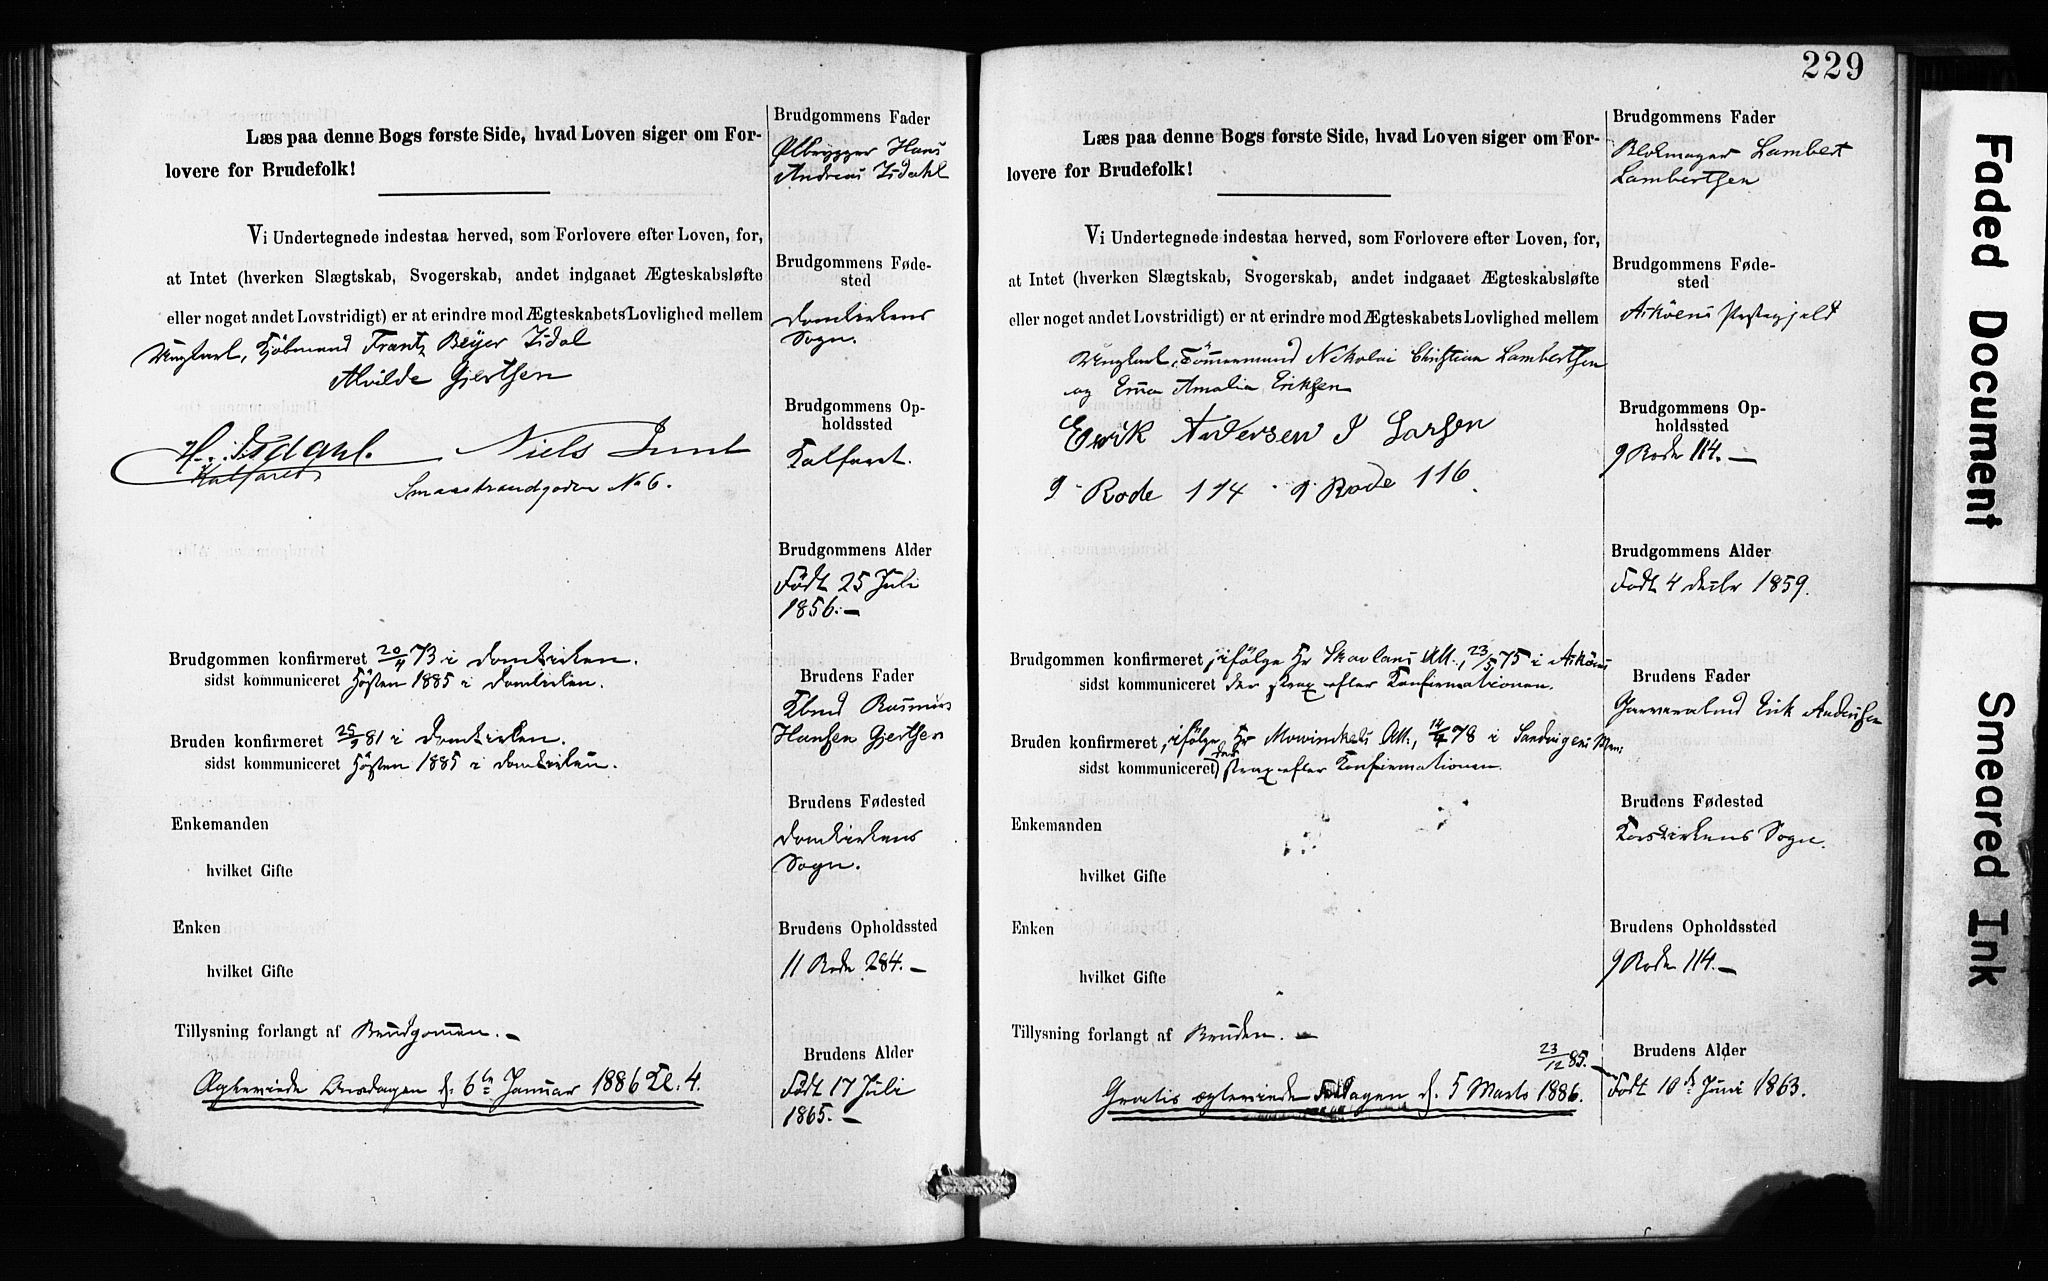 Læs paa denne Bogs første Side, hvad Loven siger om For-
lovere for Brudefolk!
Vi Undertegnede indestaa herved, som Forlovere efter Loven, for,
at Intet (hverken Slægtskab, Svogerskab, andet indgaaet Ægteskabsløfte
eller noget andet Lovstridigt) er at erindre mod Ægteskabets Lovlighed mellem
Ungkarl, Kjöbmand Frantz Beyer Isdal
Alvilde Gjertsen
H. Isdahl. Niels
Kalfaret
Smaastrandgaden No 6.
Brudgommen konfirmeret 20/4 73 i Domkirken.
sidst kommuniceret Hösten 1885 i Domkirken.
Bruden konfirmeret 25/9 81 i Domkirken.
sidst kommuniceret Hösten 1885 i Domkirken.
Enkemanden
hvilket Gifte
Enken
hvilket Gifte
Tillysning forlangt af Brudgommen. —
Ægteviede Onsdagen d. 6te Januar 1886 Kl. 4.
Brudgommens Fader
Ølbrygger Hans
Andreas Isdahl
Brudgommens Føde-
sted
Domkirkens
Sogn.
Brudgommens Op-
holdssted
Kalfaret.
Brudgommens Alder
Födt 25 Juli
1856. —
Brudens Fader
Kbmd Rasmus
Hansen Gjertsen
Brudens Fødested
Domkirkens
Sogn.
Brudens Opholdssted
11 Rode 284. —
Brudens Alder
Födt 17 Juli
1865. —
229
Læs paa denne Bogs første Side, hvad Loven siger om For-
lovere for Brudefolk!
Vi Undertegnede indestaa herved, som Forlovere efter Loven, for,
at Intet (hverken Slægtskab, Svogerskab, andet indgaaet Ægteskabsløfte
eller noget andet Lovstridigt) er at erindre mod Ægteskabets Lovlighed mellem
Ungkarl, Tömmermand Nikolai Christian Lambertsen
og Emma Amalia Eriksen
Erik Andersen J Larsen
9 Rode 114 9 Rode 116
Brudgommen konfirmeret, ifölge Hr Skavlans Att., 23/5 75 i Asköens
sidst kommuniceret der strax efter Konfirmationen.
Bruden konfirmeret, ifölge Hr Mowinckels Att., 14/4 78 i Sandvigens Men:
sidst kommuniceret der strax efter Konfirmationen.
Enkemanden
hvilket Gifte
Enken
hvilket Gifte
Tillysning forlangt af Bruden. —
23/12 85. —
Gratis ægteviede Fredagen d. 5 Marts 1886.
Brudgommens Fader
Blokmager Lambert
Lambertsen
Brudgommens Føde-
sted
Asköens Præstegjeld
Brudgommens Op-
holdssted
9 Rode 114. —
Brudgommens Alder
Födt 4 Decbr 1859.
Brudens Fader
Garversvend Erik Andersen
Brudens Fødested
Korskirkens Sogn.
Brudens Opholdssted
9 Rode 114. —
Brudens Alder
Födt 10de Juni 1863.
Faded Document
Smeared Ink